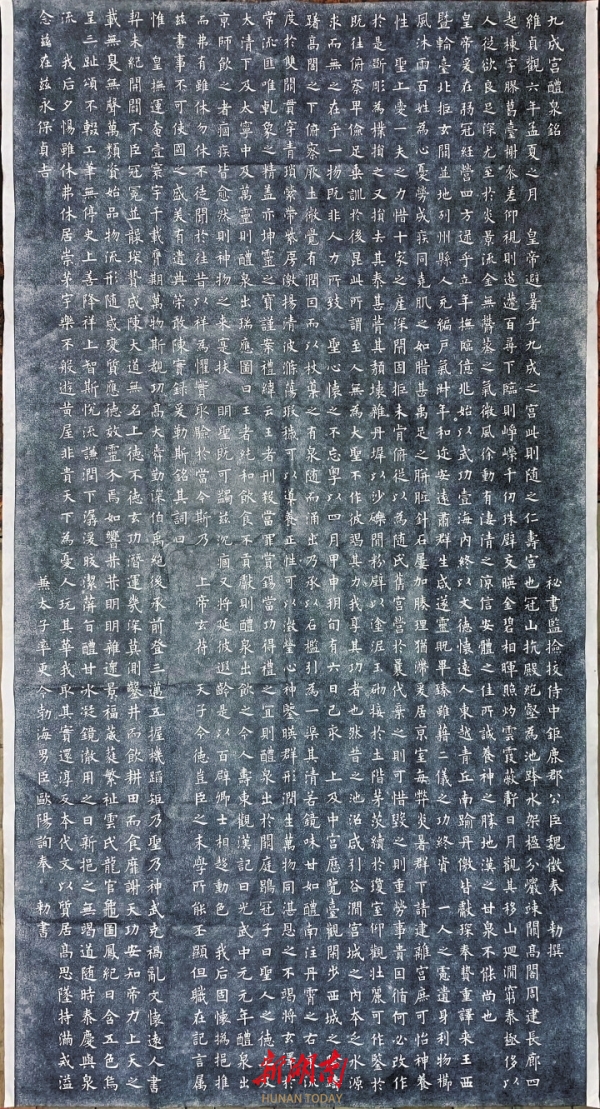 九成宮醴泉銘 秘書監撿挍侍中鉅鹿郡公臣魏徵奉 勑撰
維貞觀六年孟夏之月 皇帝避暑乎九成之宮此則隨之仁壽宮也冠山抗殿絕壑為池跨水架楹分巖竦闕高閣周建長廊四
起棟宇膠葛臺榭參差仰視則迢遰百尋下臨則崢嶸千仞珠壁交暎金碧相暉照灼雲霞蔽虧日月觀其移山迴澗窮泰極侈以
人從欲良足深尤至於炎景流金無鬱蒸之氣微風徐動有淒清之涼信安體之佳所誠養神之勝地漢之甘泉不能尚也
皇帝爰在弱冠經營四方逮乎立年撫臨億兆始以武功壹海內終以文德懷遠人東越青丘南踰丹徼皆獻琛奉贄重譯來王西
暨輪臺北拒玄闕並地列州縣人充編戶氣淑年和迩安遠肅群生咸遂靈貺畢臻雖藉二儀之功終資 一人之慮遺身利物櫛
風沐雨百姓為心憂勞成疾同堯肌之如腊甚禹足之胼胝針石屢加腠理猶滯爰居京室每弊炎暑群下請建離宮庶可怡神養
性 聖上愛一夫之力惜十家之產深閉固拒未肯俯從以為隨氏舊宮營於曩代棄之則可惜毀之則重勞事貴因循何必改作
於是斲彫為樸損之又損去其泰甚葺其頹壞雜丹墀以沙礫間粉壁以塗泥玉砌接於土階茅茨續於瓊室仰觀壯麗可作鑒於
既往俯察卑儉足垂訓於後昆此所謂至人無為大聖不作彼竭其力我享其功者也然昔之池沼咸引谷澗宮城之內本乏水源
求而無之在乎一物既非人力所致 聖心懷之不忘粵以四月甲申朔旬有六日己亥 上及中宮歷覽臺觀閑步西城之陰躊
躇高閣之下俯察厥土微覺有潤因而以杖導之有泉隨而涌出乃承以石檻引為一渠其清若鏡味甘如醴南注丹霄之右東流
度於雙闕貫穿青瑣縈帶紫房激揚清波滌蕩瑕穢可以導養正性可以澂瑩心神鑒暎群形潤生萬物同湛恩之不竭將玄澤於
常流匪唯乾象之精蓋亦坤靈之寶謹案禮緯云王者刑殺當罪賞錫當功得禮之宜則醴泉出於闕庭鶡冠子曰聖人之德上及
太清下及太寧中及萬靈則醴泉出瑞應圖曰王者純和飲食不貢獻則醴泉出飲之令人壽東觀漢記曰光武中元元年醴泉出
京師飲之者痼疾皆愈然則神物之來寔扶 明聖既可蠲茲沉痼又將延彼遐齡是以百辟卿士相趨動色 我后固懷撝挹推
而弗有雖休勿休不徒聞於往昔以祥為懼實取驗於當今斯乃 上帝玄符 天子令德豈臣之末學所能丕顯但職在記言屬
茲書事不可使國之盛美有遺典策敢陳實錄爰勒斯銘其詞曰
惟 皇撫運奄壹寰宇千載膺期萬物斯覩功高大舜勤深伯禹絕後承前登三邁五握機蹈矩乃聖乃神武克禍亂文懷遠人書
契未紀開闢不臣冠冕並襲琛贄咸陳大道無名上德不德玄功潛運幾深莫測鑿井而飲耕田而食靡謝天功安知帝力上天之
載無臭無聲萬類資始品物流形隨感變質應德效靈介焉如響赫赫明明雜遝景福葳蕤繁祉雲氏龍官龜圖鳳紀日含五色烏
呈三趾頌不輟工筆無停史上善降祥上智斯悅流謙潤下潺湲皎潔蓱旨醴甘冰凝鏡澈用之日新挹之無竭道隨時泰慶與泉
流 我后夕惕雖休弗休居崇茅宇樂不般遊黃屋非貴天下為憂人玩其華我取其實還淳反本代文以質居高思墜持滿戒溢
念茲在茲永保貞吉 兼太子率更令勃海男臣歐陽詢奉 勑書
新湖南
HUNAN TODAY